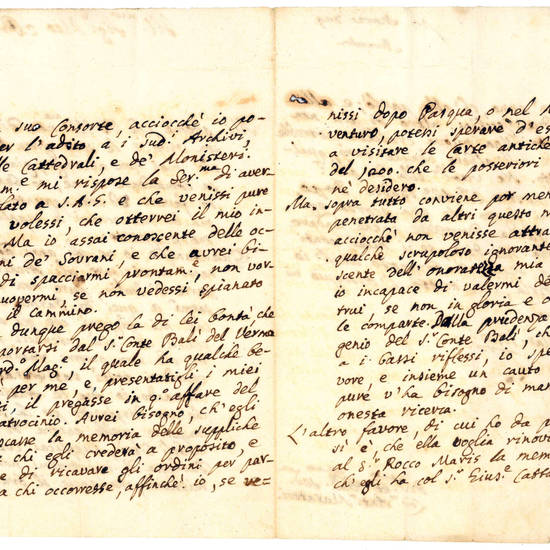 suo Consorte, acciocchè io po-
per l'adito a i sud.i Archivi,
lle Cattedrali, e de' Monisterj.
m.e mi rispose la Ser.ma di aver-
lato a S.A.S. e che venissi pure
volessi, che otterrei il mio in-
Ma io assai conoscente delle oc-
ni de' Sovrani, e che avrei bi-
di spacciarmi prontam.e non vor-
uovermi, se non vedessi spianato
il cammino.
dunque prego la di Lei bontà che
portarsi dal S.r Conte Balì del Verme
rd.o Mag.e, il quale ha qualche be-
per me, e, presentatigli i miei
ti, il pregasse in q.o affare del
atrocinio. Avrei bisogno, ch'egli
ocasse la memoria delle suppliche
e chi egli crederà a proposito, e
e di ricavare gli ordini per par-
a chi occorresse, affinchè io, se ve-
nissi dopo Pasqua, o nel M
venturo, potessi sperare d'es
a visitare le carte antiche
del 1200. che le posteriori
nè desidero.
Ma sopra tutto conviene por men
penetrata da altri questo m
acciocchè non venisse attra
qualche scrupoloso ignorante
scente dell'onoratezza mia
io incapace di valermi de
trui, se non in gloria e c
le comparte. Dalla prudenza
genio del S.r Conte Balì, ch
a i bassi riflessi, io spe
vore, e insieme un cauto
pure v'ha bisogno di mas
onesta ricerca.
L'altro favore, di cui ho da p
si è, che ella voglia rinov
al S.r Rocco Maris la mem
ch'egli ha col S.r Giuse.e Catta